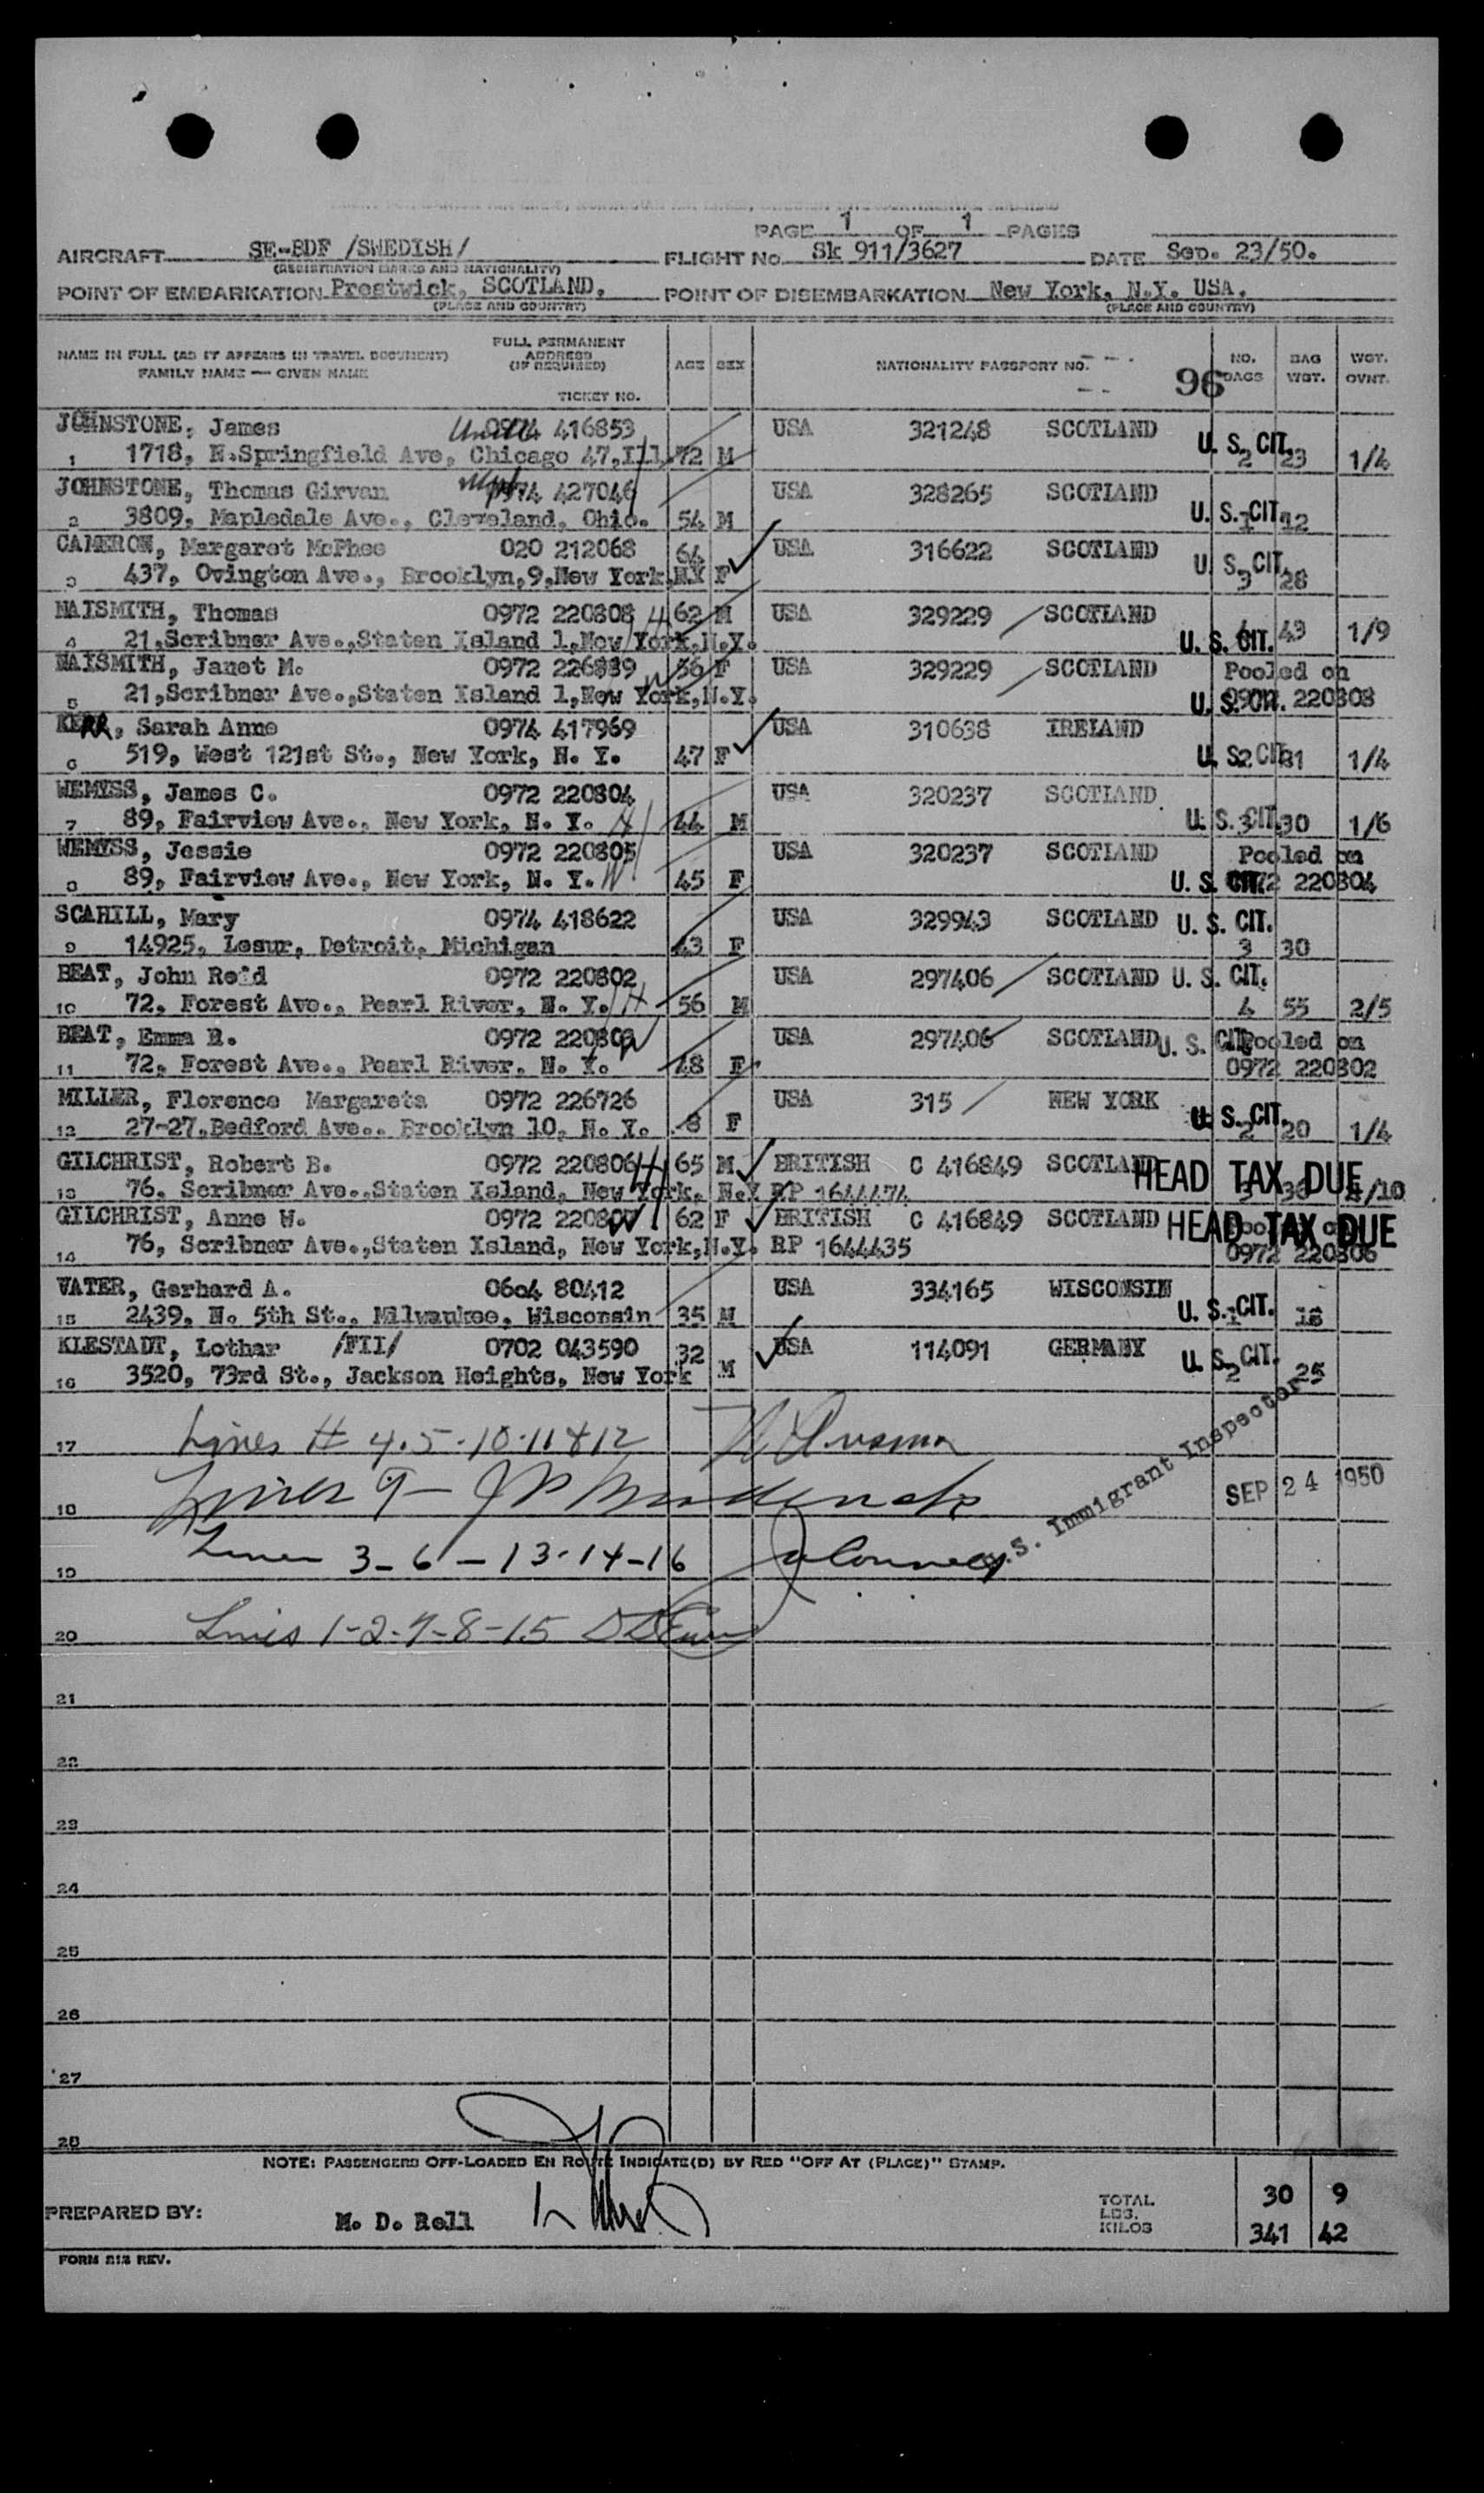 PAGE 1 OF 1 PAGES
AIRCRAFT SE-BDF /SWEDISH/ FLIGHT No. Sk 911/3627 DATE Sep. 23/50.
(REGISTRATION MARKS AND NATIONALITY)
POINT OF EMBARKATION Prestwick, SCOTLAND. POINT OF DISEMBARKATION New York, N.Y. USA.
(PLACE AND COUNTRY) (PLACE AND COUNTRY)
NAME IN FULL (AS IT APPEARS IN TRAVEL DOCUMENT) FULL PERMANENT ADDRESS (IF REQUIRED) AGE SEX NATIONALITY PASSPORT NO. NO. BAGS BAG WGT. WGT. OVNT.
FAMILY NAME — GIVEN NAME 96
TICKET NO.
JOHNSTONE, James 0974 416853 USA 321248 SCOTLAND U. S. CIT.
1 1718, N.Springfield Ave, Chicago 47,Ill 72 M 2 23 1/4
JOHNSTONE, Thomas Girvan 0974 427046 USA 328265 SCOTLAND
2 3809, Mapledale Ave., Cleveland, Ohio. 54 M U. S. CIT. 1 12
CAMERON, Margaret McPhee 020 212068 64 USA 316622 SCOTLAND
3 437, Ovington Ave., Brooklyn,9,New York,NY F U. S. CIT. 3 28
NAISMITH, Thomas 0972 220808 H 62 M USA 329229 SCOTLAND
4 21,Scribner Ave.,Staten Island 1,New York,N.Y. U. S. CIT. 43 1/9
NAISMITH, Janet M. 0972 226839 W 56 F USA 329229 SCOTLAND Pooled on
5 21,Scribner Ave.,Staten Island 1,New York,N.Y. U. S. CIT. 220808
KERR, Sarah Anne 0974 417969 USA 310638 IRELAND
6 519, West 121st St., New York, N. Y. 47 F U. S. CIT. 2 21 1/4
WEMYSS, James C. 0972 220804 USA 320237 SCOTLAND
7 89, Fairview Ave., New York, N. Y. H 44 M U. S. CIT. 3 30 1/6
WEMYSS, Jessie 0972 220805 USA 320237 SCOTLAND Pooled on
8 89, Fairview Ave., New York, N. Y. W 45 F U. S. CIT. 0972 220804
SCAHILL, Mary 0974 418622 USA 329943 SCOTLAND U. S. CIT.
9 14925, Lesur, Detroit, Michigan 43 F 3 30
BEAT, John Reid 0972 220802 USA 297406 SCOTLAND U. S. CIT.
10 72, Forest Ave., Pearl River, N. Y. H 56 M 4 55 2/5
BEAT, Emma R. 0972 220803 W USA 297406 SCOTLAND U. S. CIT. Pooled on
11 72, Forest Ave., Pearl River, N. Y. 48 F 0972 220802
MILLER, Florence Margareta 0972 226726 USA 315 NEW YORK
12 27-27,Bedford Ave.. Brooklyn 10, N. Y. 8 F U. S. CIT. 2 20 1/4
GILCHRIST, Robert B. 0972 220806 H 65 M BRITISH C 416849 SCOTLAND HEAD TAX DUE
13 76, Scribner Ave.,Staten Island, New York, N.Y RP 1644474 /10
GILCHRIST, Anne W. 0972 220807 W 62 F BRITISH C 416849 SCOTLAND HEAD TAX DUE
14 76, Scribner Ave.,Staten Island, New York,N.Y. RP 1644435 0972 220806
VATER, Gerhard A. 0604 80412 USA 334165 WISCONSIN
15 2439, N. 5th St., Milwaukee, Wisconsin 35 M U. S. CIT. 1 18
KLESTADT, Lothar /FII/ 0702 043590 32 USA 114091 GERMANY
16 3520, 73rd St., Jackson Heights, New York M U. S. CIT. 2 25
17 Lines # 4.5-10-11 & 12
18 Lines 9 - SEP 24 1950
19 Lines 3-6-13-14-16 U.S. Immigrant Inspector
20 Lines 1-2-7-8-15
21
22
23
24
25
26
27
28
NOTE: PASSENGERS OFF-LOADED EN ROUTE INDICATE(D) BY RED "OFF AT (PLACE)" STAMP.
PREPARED BY: M. D. Rell TOTAL LBS. KILOS 30 9
341 42
FORM 212 REV.